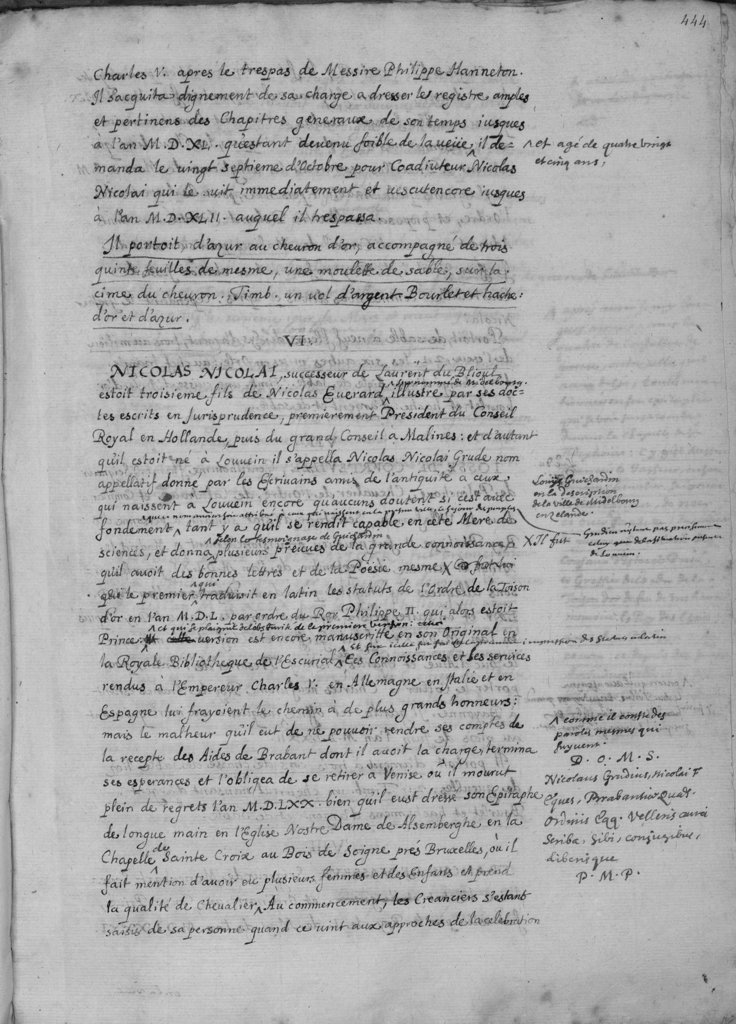 444
Charles V. apres le trespas de Messire Philippe Hanneton.
Il sacquita dignement de sa charge a dresser les registre amples
et pertinens des Chapitres generaux de son temps iusques
à l'an M.D.XL. qu'estant devenu foible de la veüe, il de-
manda le vingt septieme d'Octobre pour Coadiuteur Nicolas
^ et agé de quatre vingt
et cinq ans;
Nicolai qui le suit immediatement et uescut encore iusques
à l'an M.D.XLII. auquel il trespassa.
Il portoit, d'azur au cheuron d'or, accompagné de trois
quinte feuilles de mesme, une moulette de sable, sur la
cime du cheuron. Timb. un vol d'argent Bourlet et hache:
d'or et d'azur.
VI.
NICOLAS NICOLAI, successeur de Laurent du Blioul,
estoit troisieme fils de Nicolas Euerard illustre par ses doc-
tes escrits en Jurisprudence, premierement President du Conseil
Royal en Hollande, puis du grand Conseil a Malines: et d'autant
qu'il estoit né à Louvein il s'appella Nicolas Nicolai Grude nom
appellatif donné par les Ecrivains amis de l'antiquité a ceux
qui naissent à Louvein encore qu'aucuns doutent si c'est avec
Louys Guichardin
en la description
de la ville de Midelbourg
en Zelande.
fondement, tant y a qu'il se rendit capable en cete Mere de
sciences, et donna plusieurs preuves de la grande connoissance
qu'il avoit des bonnes lettres et de la Poesie, mesme
que le premier traduisit en latin les statuts de l'Ordre de la Toison
d'or en l'an M.D.L. par ordre du Roy Philippe II. qui alors estoit
Prince: version est encore manuscritte en son Original en
la Royale Bibliotheque de l'Escurial. Ces connoissances et les services
rendus à l'Empereur Charles V. en Allemagne en Italie et en
Espagne lui frayoient le chemin à de plus grands honneurs:
mais le malheur qu'il eut de ne pouvoir rendre ses comptes de
la recepte des Aides de Brabant dont il avoit la charge, termina
ses esperances et l'obligea de se retirer à Venise où il mourut
plein de regrets l'an M.D.LXX. bien qu'il eust dressé son Epitaphe
de longue main en l'Eglise Nostre Dame de Alsemberghe, en la
Chapelle de Sainte Croix au Bois de Soigne pres Bruxelles, où il
fait mention d'avoir eu plusieurs femmes et des Enfans et prend
la qualité de Chevalier. Au commencement, les Creanciers s'estant
saisis de sa personne quand ce vint aux approches de la celebration
^ comme il conste des
paroles mesmes qui
suyuent.
D. O. M. S.
Nicolaus Grudius, Nicolai F.
Eques,
Ordinis Eqq. Velleris aurei
Scriba, Sibi, coniugibus,
liberisque
P. M. P.